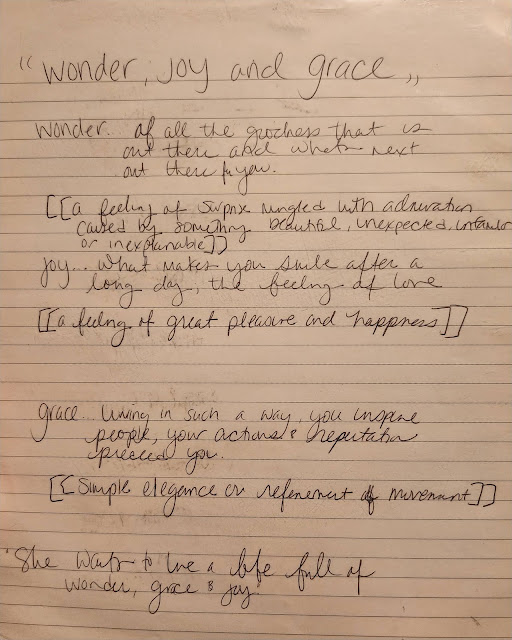 "wonder, joy and grace"
wonder.. of all the goodness that is
out there and whats next
out there for you.
[[a feeling of surprise mingled with admiration
caused by something beautiful, unexpected, unfamiliar
or inexplainable]]
joy... what makes you smile after a
long day, the feeling of love
[[a feeling of great pleasure and happness]]
grace.. living in such a way, you inspire
people, your actions & reputation
preceed you.
[[simple elegance or refinement of movement]]
"She wants to live a life full of
wonder, grace & joy"